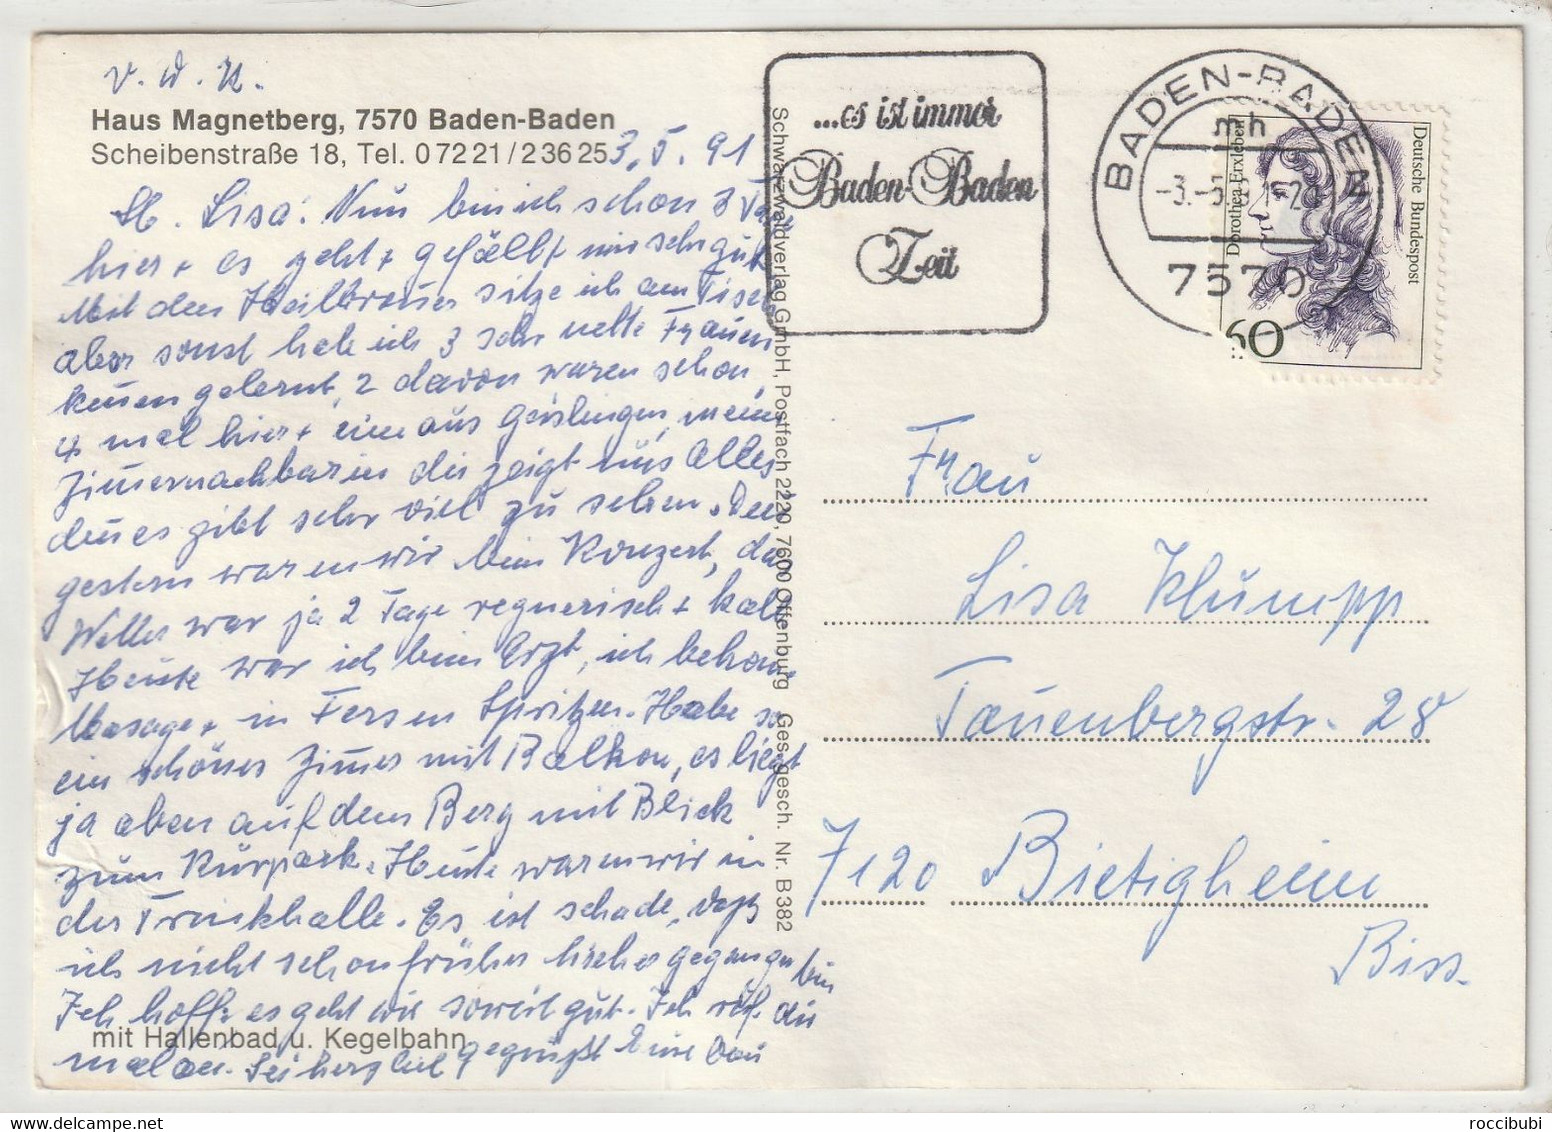 V. d. K.
Haus Magnetberg, 7570 Baden-Baden
Scheibenstraße 18, Tel. 07221/23625
3.5.91
Lb. Lisa! Nun bin ich schon 3 Tage
hier + es geht + gefällt mir sehr gut
Mit den Heilbronner sitze ich am Tisch
aber sonst habe ich 3 sehr nette Frauen
kennen gelernt, 2 davon waren schon
4 mal hier + eine aus Geislingen, meine
Zimmernachbarin die zeigt uns Alles
denn es gibt sehr viel zu sehen.
gestern waren wir beim Konzert, das
Wetter war ja 2 Tage regnerisch + kalt
Heute war ich beim Arzt, ich bekomme
Masage + in Fersen Spritzen. Habe so
ein schönes Zimmer mit Balkon, es liegt
ja oben auf dem Berg mit Blick
zum Kurpark. Heute waren wir in
der Trinkhalle. Es ist schade, daß
ich nicht schon früher hierher gegangen bin
Ich hoffe es geht dir soweit gut. Ich ruf dir
mal an. Sei herzlich gegrüßt Eure
mit Hallenbad u. Kegelbahn
Schwarzwaldverlag GmbH, Postfach 2220, 7600 Offenburg Ges. gesch. Nr. B382
...es ist immer
Baden-Baden
Zeit
BADEN-BADEN
mh
-3.-5.91-20
7570
Deutsche Bundespost
Dorothea Erxleben
60
Frau
Lisa Klumpp
Tauenbergstr. 28
7120 Bietigheim
Biss.
roccibubi